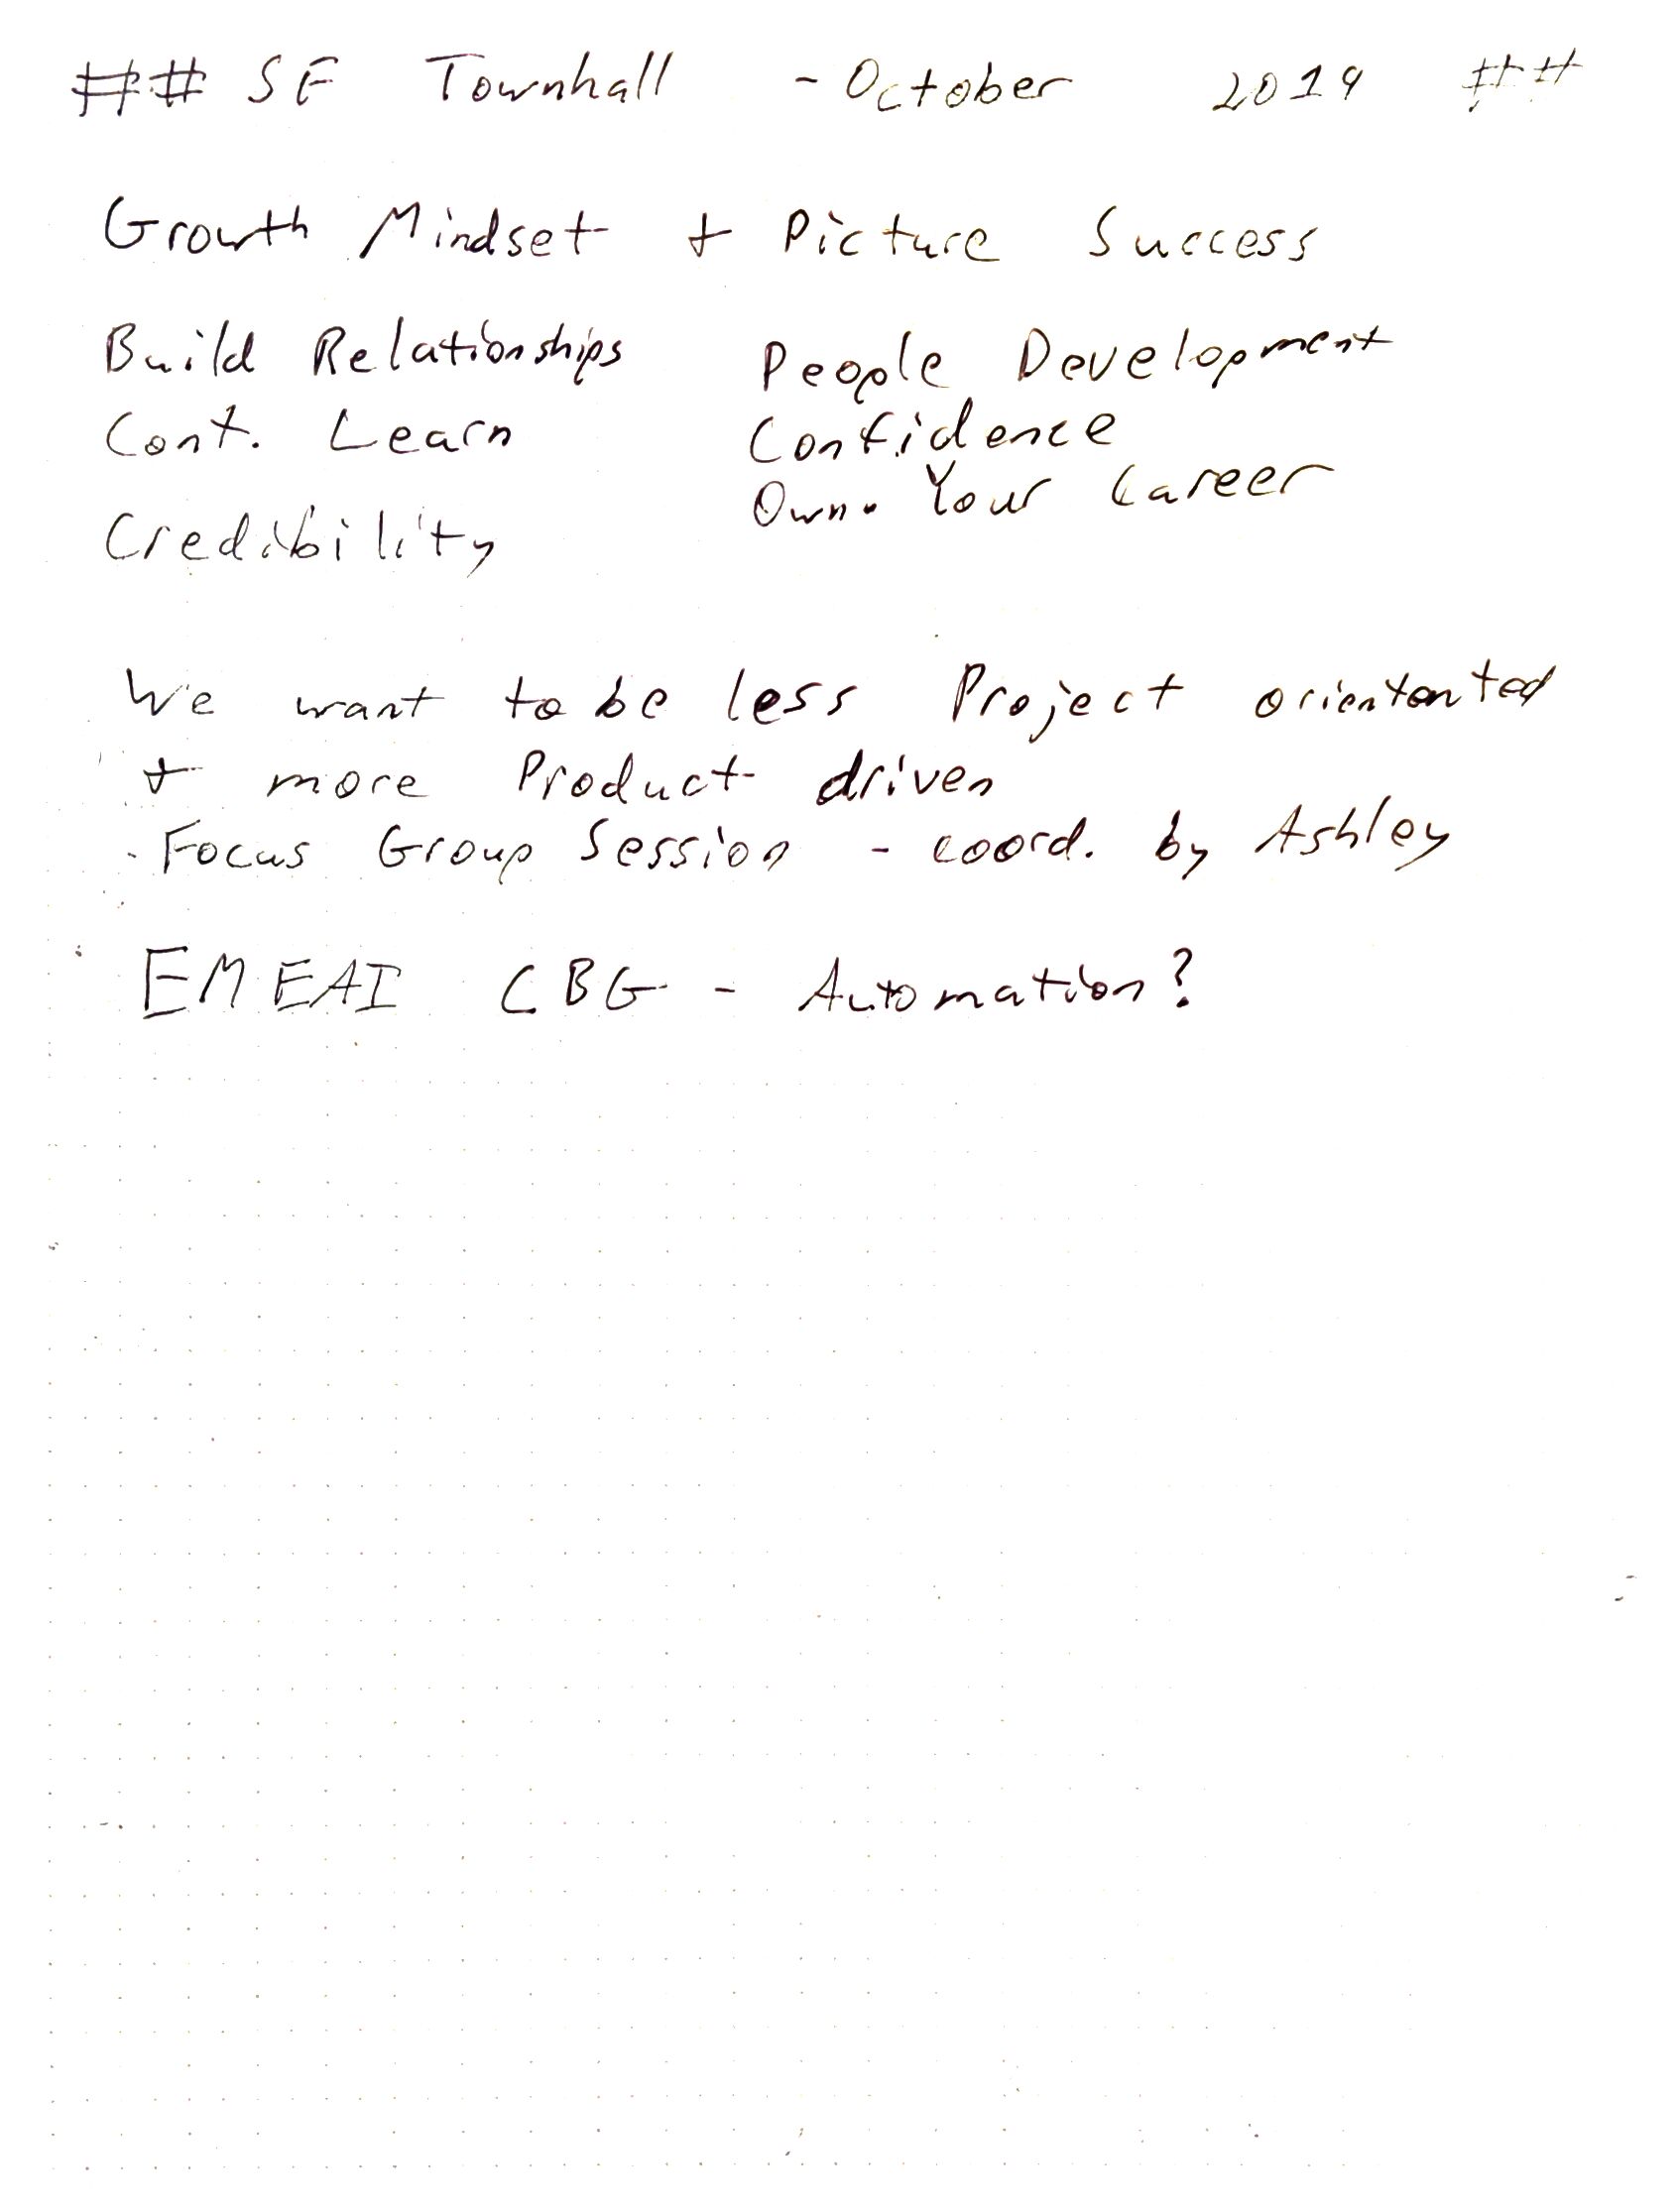 ## SF Townhall - October 2019 ##
Growth Mindset + Picture Success
Build Relationships
Cont. Learn
Credibility
People Development
Confidence
Own. Your Career
We want to be less Project orientonted
+ more Product driven
- Focus Group Session - coord. by Ashley
EMEAI CBG - Automation?